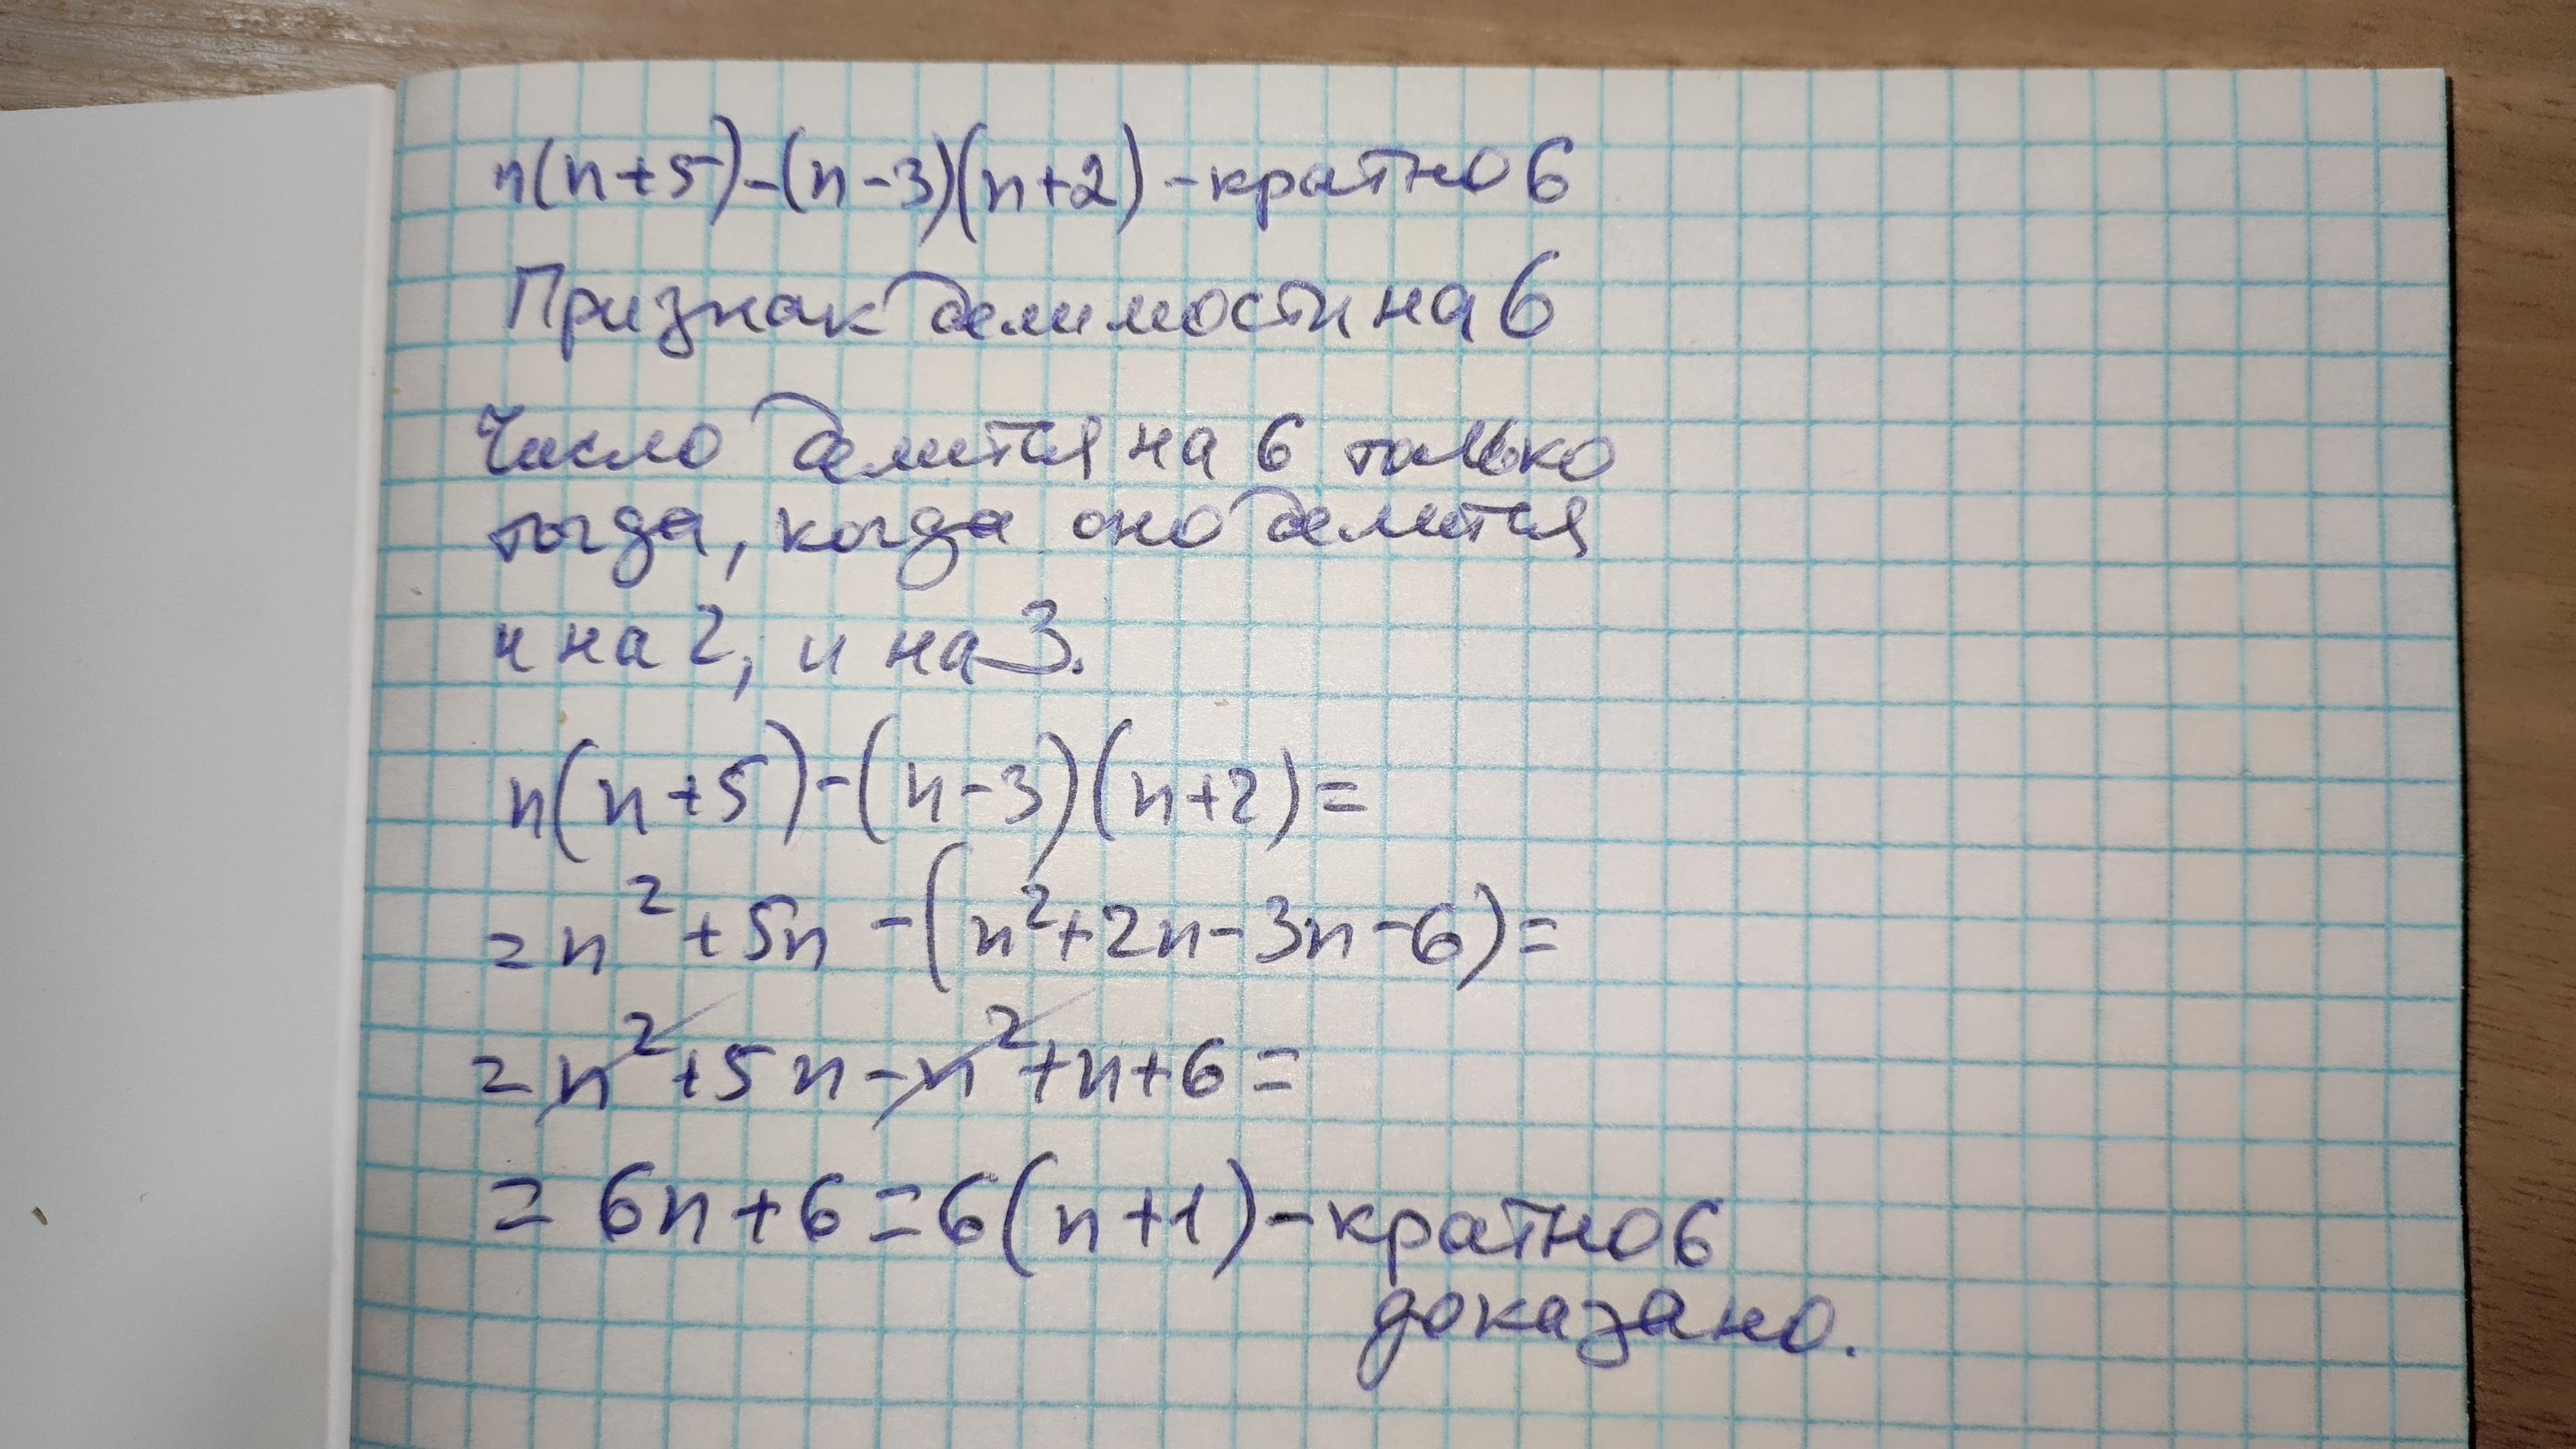 n(n+5)-(n-3)(n+2) - кратно 6
Признак делимости на 6
Число делится на 6 только
тогда, когда оно делится
и на 2, и на 3.
n(n+5)-(n-3)(n+2)=
=n²+5n-(n²+2n-3n-6)=
=n²+5n-n²+n+6=
=6n+6=6(n+1)-кратно 6
доказано.